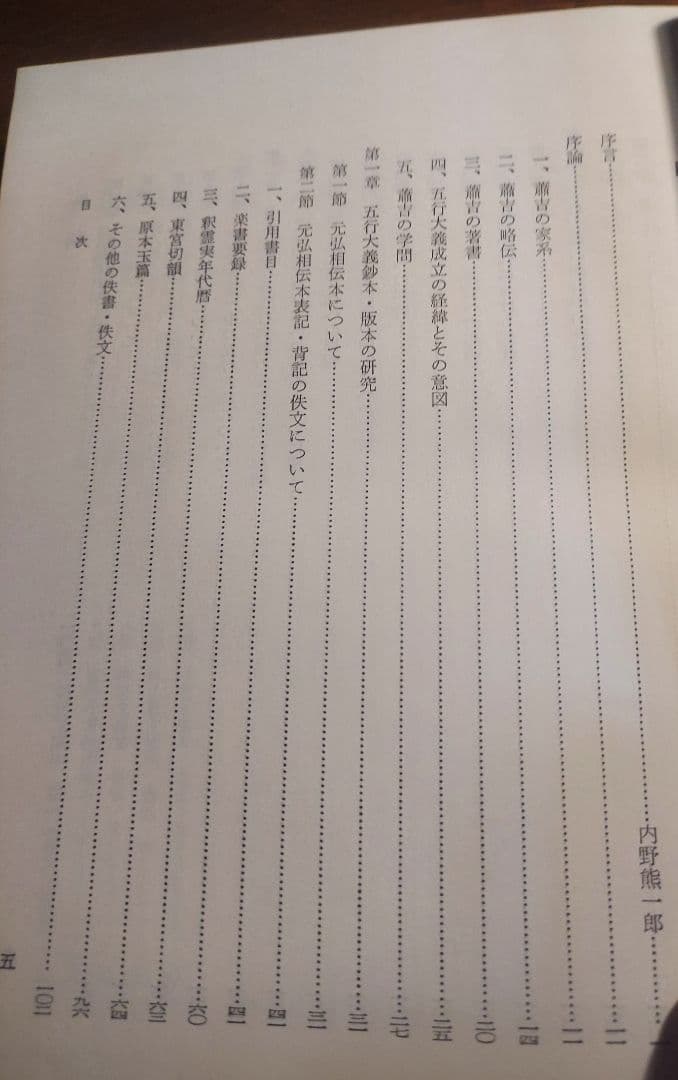 序言……内野熊一郎……一
序論……一一
一、蕭吉の家系……一一
二、蕭吉の略伝……一四
三、蕭吉の著書……二〇
四、五行大義成立の経緯とその意図……二五
五、蕭吉の学問……二七
第一章　五行大義鈔本・版本の研究……三一
第一節　元弘相伝本について……三一
第二節　元弘相伝本表記・背記の佚文について……四一
一、引用書目……四一
二、楽書要録……六〇
三、釈霊実年代暦……六三
四、東宮切韻……六四
五、原本玉篇……九六
六、その他の佚書・佚文……一〇二
目次
五